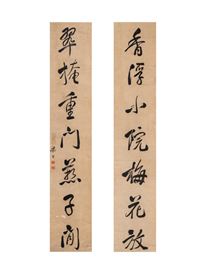 香浮小院梅花放
翠掩重门燕子闲